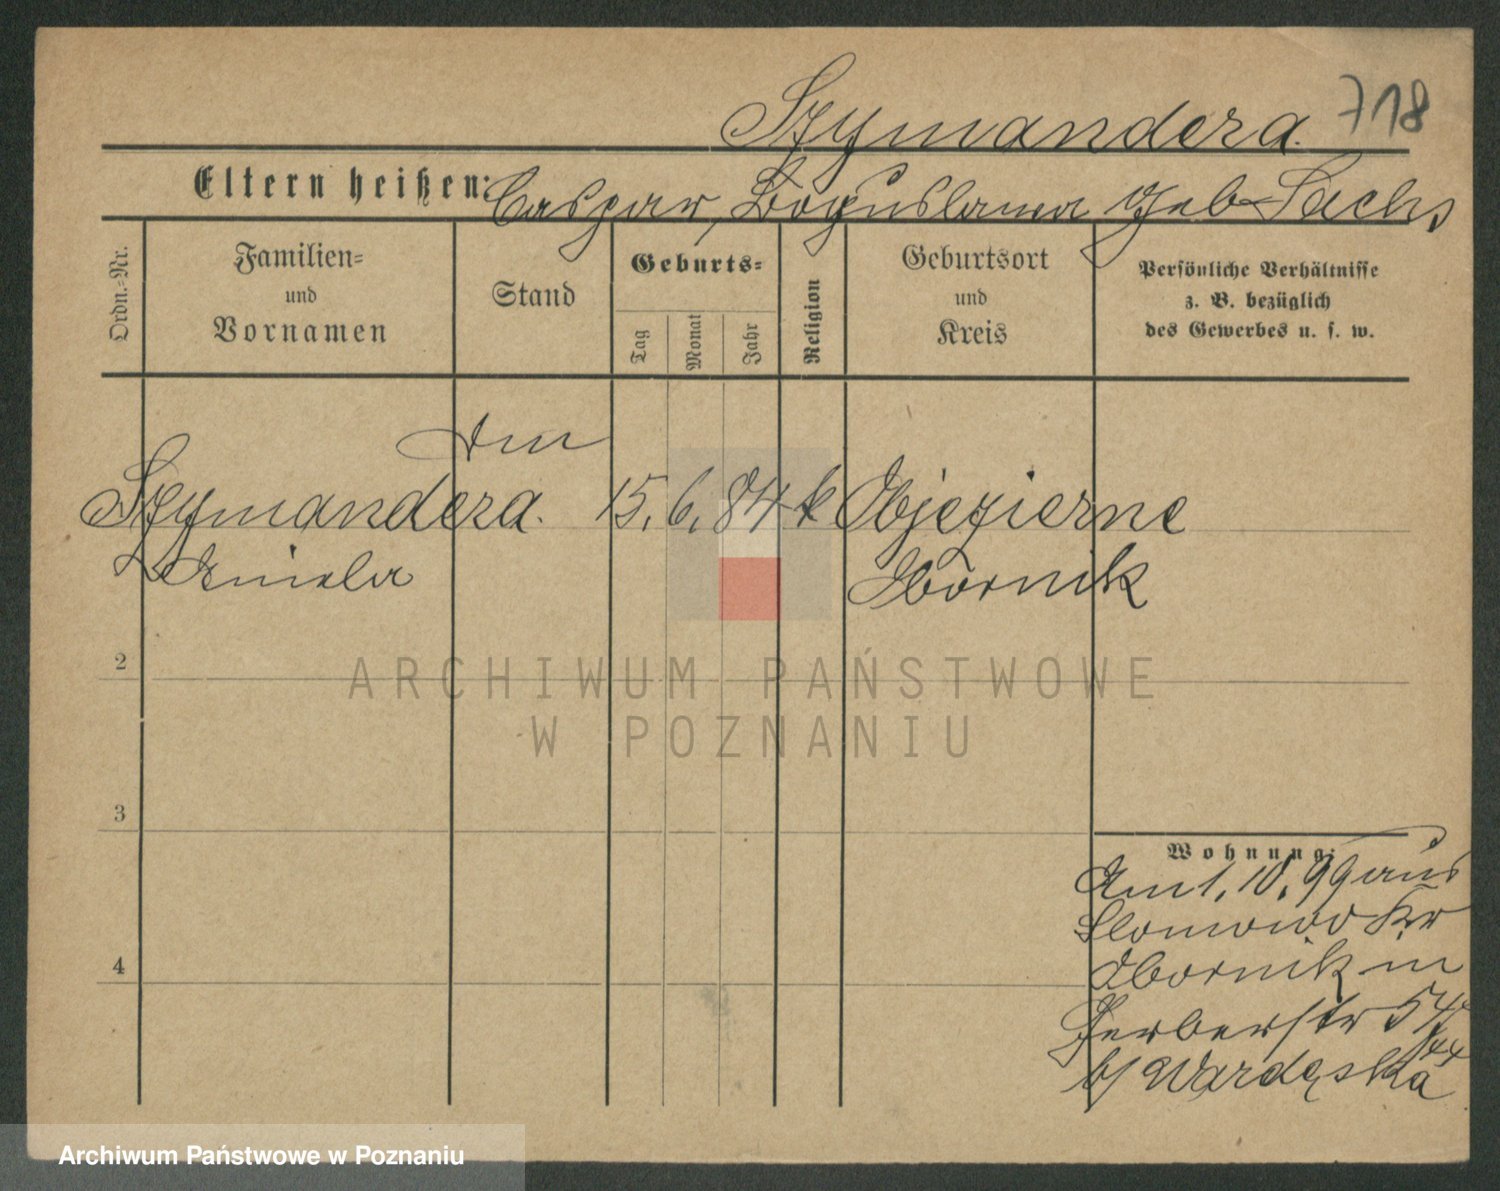 Szymandera. 718
Eltern heißen: Caspar, Boguslawa geb Sachs
Ordn.-Nr.
Familien-
und
Vornamen
Stand
Geburts-
Tag
Monat
Jahr
Religion
Geburtsort
und
Kreis
Persönliche Verhältnisse
z. B. bezüglich
des Gewerbes u. s. w.
Szymandera. 15. 6. 84 k Objezierne
Aniela Obornik
2
ARCHIWUM PAŃSTWOWE
W POZNANIU
3
Wohnung:
Am 1. 10. 99 aus
Slomowo Kr
4
Obornik in
Gerberstr 54
b/
Archiwum Państwowe w Poznaniu